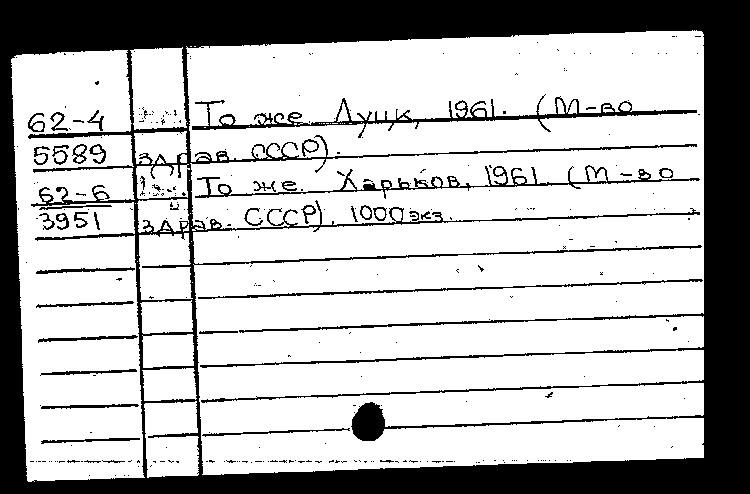 62-4 То же Луцк, 1961. (М-во
5589 здрав. СССР).
62-6 То же. Харьков, 1961 (М-во
3951 здрав. СССР). 1000 экз.